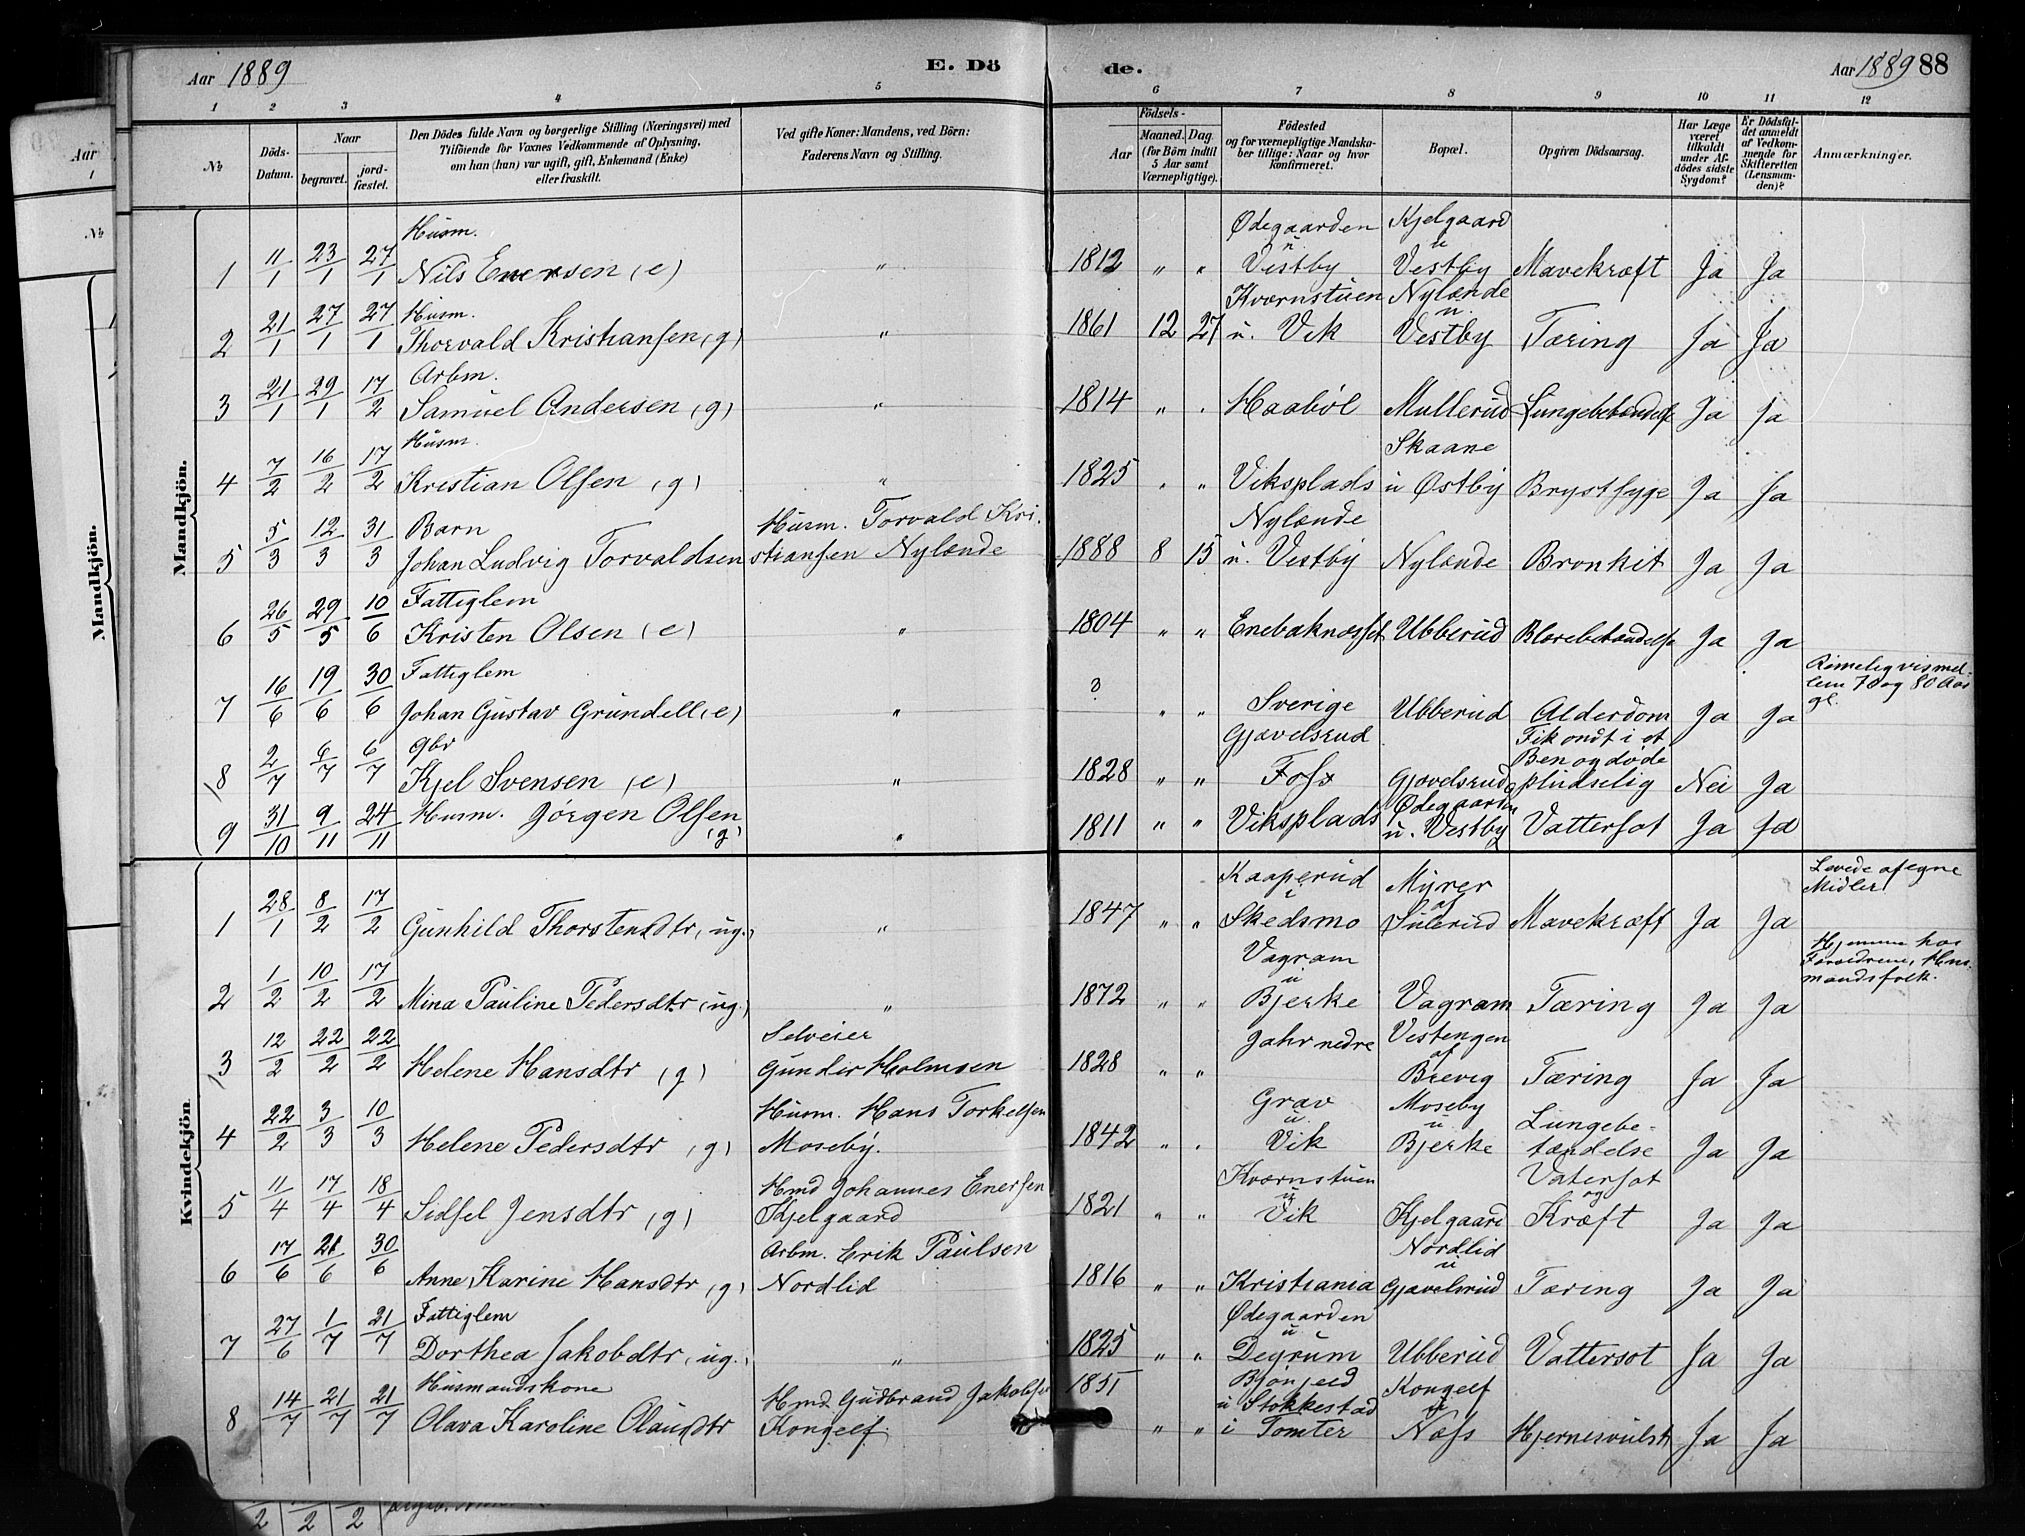 Aar 1889 E. Dö de. Aar 1889 88
1 2 3 4 5 6 7 8 9 10 11 12
№ Döds-Datum. Naar begravet. jord-fæstet. Den Dödes fulde Navn og borgerlige Stilling (Næringsvei) med Tilföiende for Voxnes Vedkommende af Oplysning, om han (hun) var ugift, gift, Enkemand (Enke) eller fraskilt. Ved gifte Koner: Mandens, ved Börn: Faderens Navn og Stilling. Födsels- Aar Maaned. Dag. (for Börn indtil 5 Aar samt Værnepligtige). Födested og for værnepligtige Mandska-ber tillige: Naar og hvor konfirmeret. Bopæl. Opgiven Dödsaarsag. Har Læge været tilkaldt under Af-dödes sidste Sygdom? Er Dödsfal-det anmeldt af Vedkom-mende for Skifteretten (Lensman-den)? Anmærkninger.
Mandkjön.
1 11/1 23/1 27/1 Husm. Nils Enersen (e) " 1812 " " Ødegaarden u Vestby Kjelgaard u Vestby Mavekræft Ja Ja
2 21/1 27/1 27/1 Husm. Thorvald Kristiansen (g) " 1861 12 27 Kværnstuen u. Vik Nylænde u. Vestby Tæring Ja Ja
3 21/1 29/1 17/2 Arbm. Samuel Andersen (g) " 1814 " " Haabøl Mullerud Lungebetændelse Ja Ja
4 7/2 16/2 17/2 Husm. Kristian Olsen (g) " 1825 " " Viksplads Skaane u Østby Brystsyge Ja Ja
5 5/3 12/3 31/3 Barn Johan Ludvig Torvaldsen Husm. Torvald Kri-stiansen Nylænde 1888 8 15 Nylænde u. Vestby Nylænde Bronkit Ja Ja
6 26/5 29/5 10/6 Fattiglem Kristen Olsen (e) " 1804 " " Enebaknæsset Ubberud Blærebetændelse Ja Ja
7 16/6 19/6 30/6 Fattiglem Johan Gustav Grundell (e) " ? " " Sverige Ubberud Alderdom Ja Ja Rimeligvis mel-lem 70 og 80 Aar gl.
8 2/7 6/7 6/7 Gbr Kjel Svensen (e) " 1828 " " Gjævelsrud Foss Gjævelsrud Fik ondt i et Ben og døde pludselig Nei Ja
9 31/10 9/11 24/11 Husm. Jørgen Olsen (g) " 1811 " " Viksplads Ødegaarden u. Vestby Vattersot Ja Ja
Kvindekjön
1 28/1 8/2 17/2 Gunhild Thorstensdtr (ug.) " 1847 " " Kaaperud i Skedsmo Myrer af Sulerud Mavekræft Ja Ja Levede af egne Midler
2 1/2 10/2 17/2 Mina Pauline Pedersdtr (ug.) " 1872 " " Vagram u Bjerke Vagram Tæring Ja Ja Hjemme hos Forældrene, Hus-mandsfolk.
3 12/2 22/2 22/2 Helene Hansdtr (g) Selveier Gunder Holmsen 1828 " " Jahr nedre Vestengen af Brevig Tæring Ja Ja
4 22/2 3/3 10/3 Helene Pedersdtr (g) Husm. Hans Torkelsen Moseby. 1842 " " Grav u. Vik Moseby u Bjerke Lungebe-tændelse Ja Ja
5 11/4 17/4 18/4 Sidsel Jensdtr (g) Hmd Johannes Enersen Kjelgaard 1821 " " Kværnstuen u Vik Kjelgaard Vatersot og Kræft Ja Ja
6 17/6 21/6 30/6 Anne Karine Hansdtr (g) Arbm. Erik Paulsen Nordlid 1816 " " Kristiania Nordlid u Gjævelsrud Tæring Ja Ja
7 27/6 1/7 21/7 Fattiglem Dorthea Jakobdtr (ug.) " 1825 " " Ødegaarden u Degrum Ubberud Vattersot Ja Ja
8 14/7 21/7 21/7 Husmandskone Olava Karoline Olausdtr Hmd Gudbrand Jakobsen Kongelf 1851 " " u Stokkestad i Tomter Kongelf u Næss Hjernesvulst Ja Ja
Aar
1
№
Mandkjön.